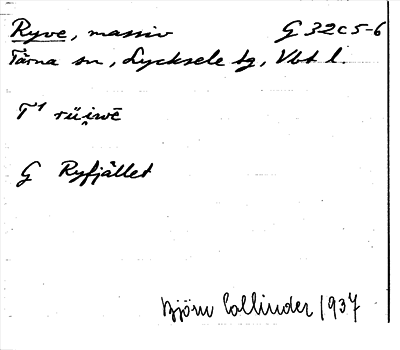 Ryve, massiv G 32c5-6
Tärna sn, Lycksele tg, Vbt l.
T¹ rüi̯wē
G Ryfjället
Björn Collinder 1937